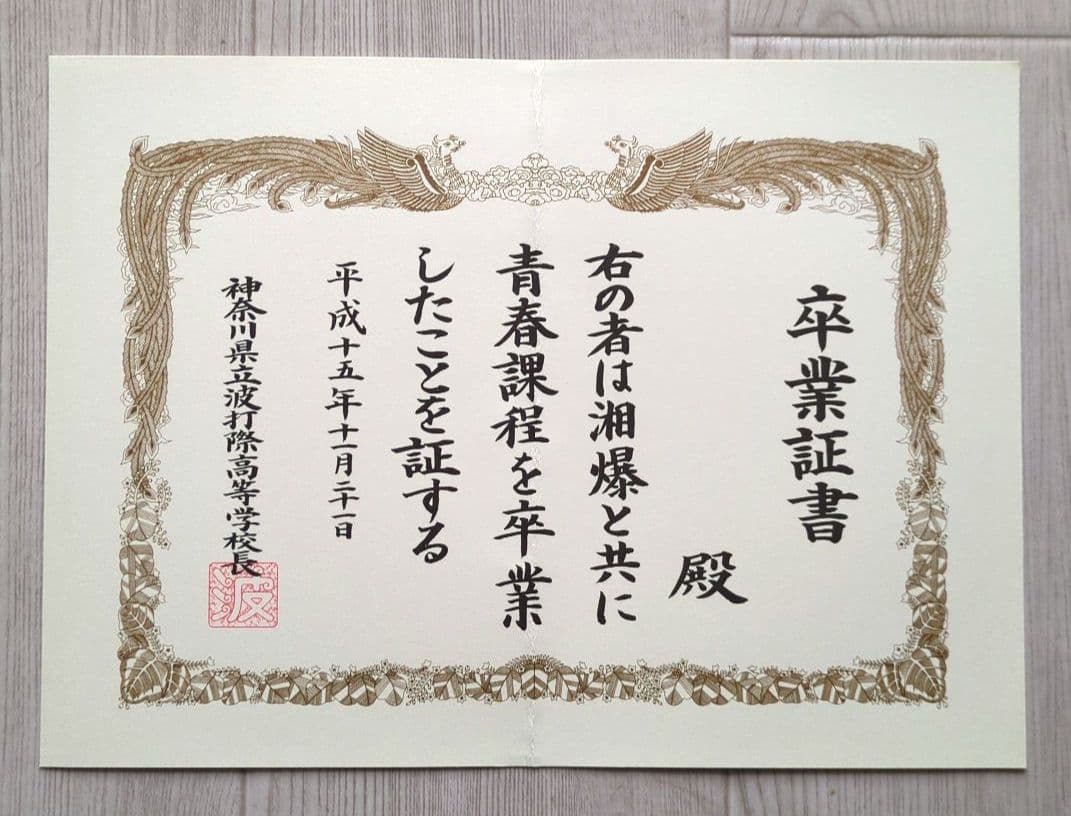 卒業証書
殿
右の者は湘爆と共に
青春課程を卒業
したことを証する
平成十五年十一月二十一日
神奈川県立波打際高等学校長
波